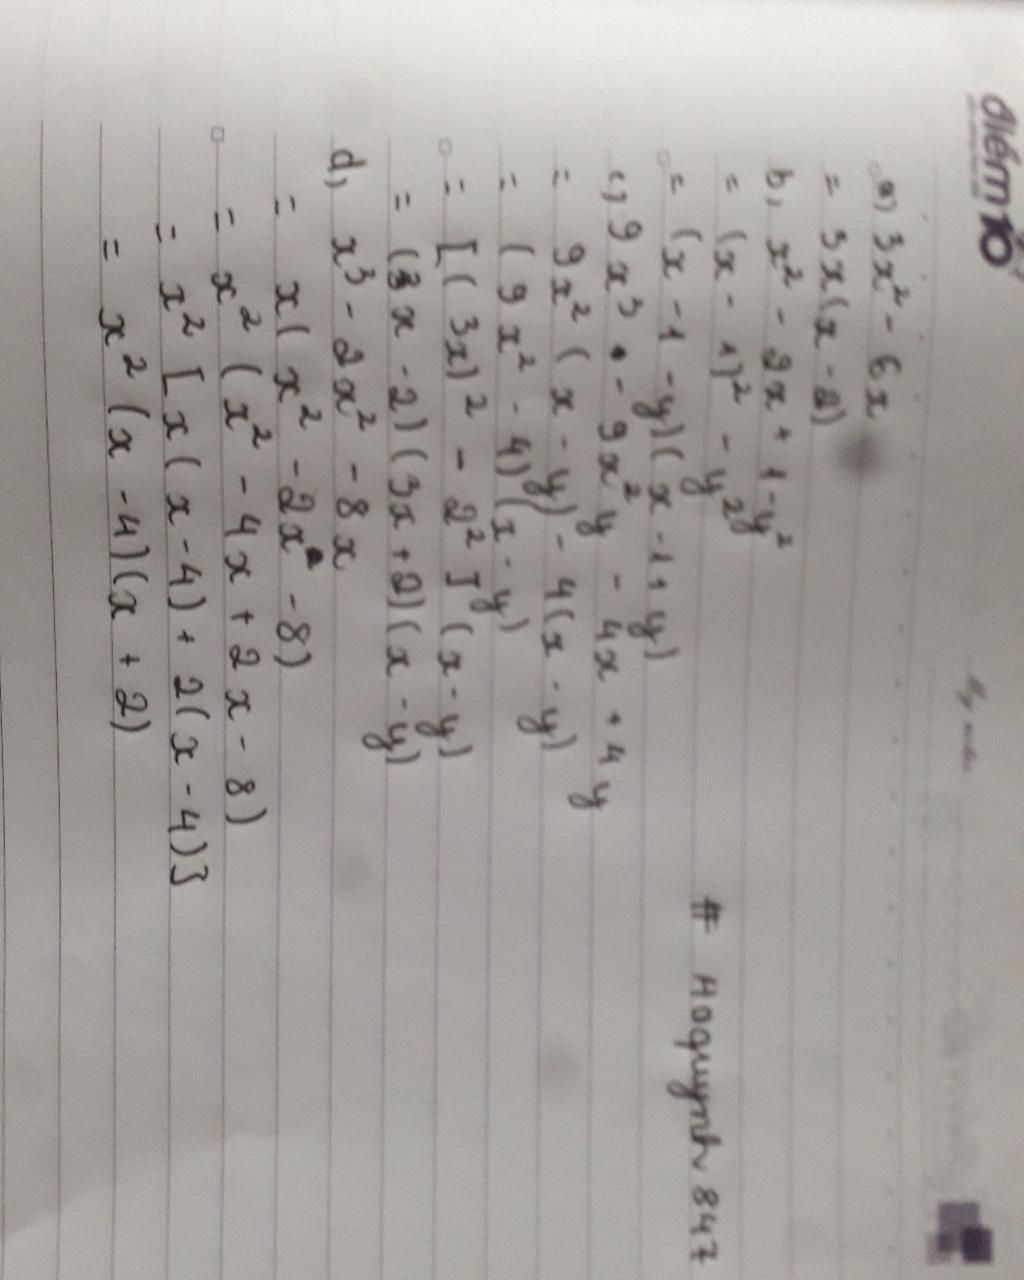 điểm 10
a) 3x² - 6x
= 3x(x - 2)
b, x² - 2x + 1 - y²
= (x - 1)² - y²
= (x - 1 - y)(x - 1 + y)
c, 9x³ - 9x²y - 4x + 4y
= 9x²(x - y) - 4(x - y)
= (9x² - 4)(x - y)
= [(3x)² - 2²](x - y)
= (3x - 2)(3x + 2)(x - y)
d, x³ - 2x² - 8x
= x(x² - 2x - 8)
= x²(x² - 4x + 2x - 8)
= x²[x(x - 4) + 2(x - 4)]
= x²(x - 4)(x + 2)
# Hoquynh 847